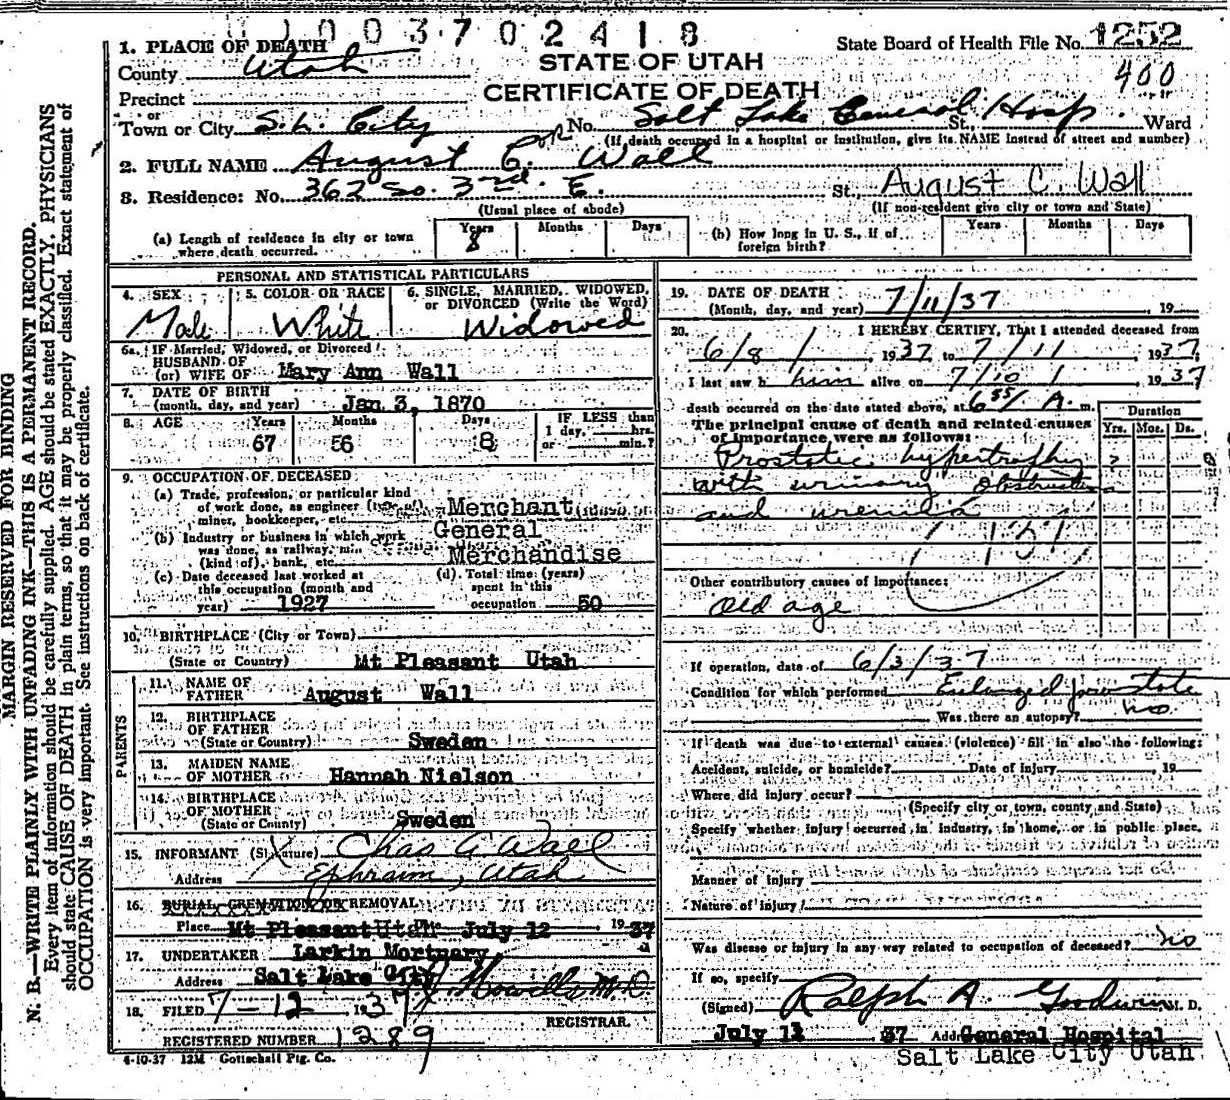 1003702418
State Board of Health File No. 1252
400
1. PLACE OF DEATH
STATE OF UTAH
County Utah
CERTIFICATE OF DEATH
Precinct
or
Town or City S.L. City No. Salt Lake General Hosp. St. Ward
(If death occurred in a hospital or institution, give its NAME instead of street and number)
2. FULL NAME August C. Wall
3. Residence: No. 362 So. 3rd. E. St. August C. Wall
(Usual place of abode) (If non-resident give city or town and State)
(a) Length of residence in city or town where death occurred. Years 8 Months Days
(b) How long in U. S., if of foreign birth? Years Months Days
PERSONAL AND STATISTICAL PARTICULARS
4. SEX Male
5. COLOR OR RACE White
6. SINGLE, MARRIED, WIDOWED, or DIVORCED (Write the Word) Widowed
6a. IF Married, Widowed, or Divorced
HUSBAND OF
(or) WIFE OF Mary Ann Wall
7. DATE OF BIRTH
(month, day, and year) Jan. 3, 1870
8. AGE Years 67 Months 56 Days 8 IF LESS than 1 day, hrs. or min.?
9. OCCUPATION OF DECEASED
(a) Trade, profession, or particular kind
of work done, as engineer (type of), Merchant
miner, bookkeeper, etc.
(b) Industry or business in which work General
was done, as railway, Merchandise
(kind of), bank, etc.
(c) Date deceased last worked at this occupation (month and year) 1927
(d) Total time (years) spent in this occupation 50
10. BIRTHPLACE (City or Town)
(State or Country) Mt Pleasant Utah
PARENTS
11. NAME OF FATHER August Wall
12. BIRTHPLACE OF FATHER
(State or County) Sweden
13. MAIDEN NAME OF MOTHER Hannah Nielson
14. BIRTHPLACE OF MOTHER
(State or County) Sweden
15. INFORMANT (Signature) Chas G Wall
Address Ephraim, Utah
16. BURIAL CREMATION OR REMOVAL
Place Mt Pleasant Utah July 12, 1937
17. UNDERTAKER Larkin Mortuary
Address Salt Lake City
18. FILED 7-12 1937 M.D.
REGISTRAR.
REGISTERED NUMBER 1289
4-10-37 12M Gottschall Ptg. Co.
19. DATE OF DEATH
(Month, day, and year) 7/11/37 19
20. I HEREBY CERTIFY, That I attended deceased from
6/8/ 1937, to 7/11 1937;
I last saw him alive on 7/10/ 1937
death occurred on the date stated above, at 6 55/ A. m.
The principal cause of death and related causes
of importance were as follows:
Duration
Yrs. Mos. Ds.
Prostatic hypertrophy ?
with urinary obstruction
and uremia
137
Other contributory causes of importance:
Old age
If operation, date of 6/3/37
Condition for which performed Enlarged prostate
Was there an autopsy? no.
If death was due to external causes (violence) fill in also the following:
Accident, suicide, or homicide? Date of injury, 19
Where did injury occur?
(Specify city or town, county and State)
Specify whether injury occurred in industry, in home, or in public place.
Manner of injury
Nature of injury
Was disease or injury in any way related to occupation of deceased? no
If so, specify
(Signed) Ralph A. Goodwin M. D.
July 12 37 Address General Hospital
Salt Lake City Utah
MARGIN RESERVED FOR BINDING
N. B.—WRITE PLAINLY WITH UNFADING INK—THIS IS A PERMANENT RECORD.
Every item of information should be carefully supplied. AGE should be stated EXACTLY. PHYSICIANS
should state CAUSE OF DEATH in plain terms, so that it may be properly classified. Exact statement of
OCCUPATION is very important. See instructions on back of certificate.